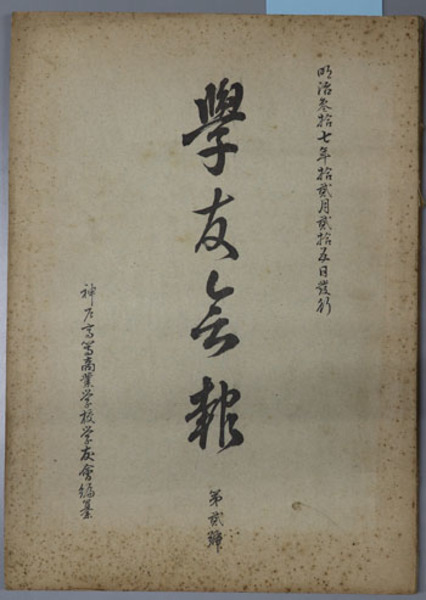 明治叁拾七年拾貳月貳拾五日發行
學友會報
第貳號
神戸高等商業学校学友會編纂